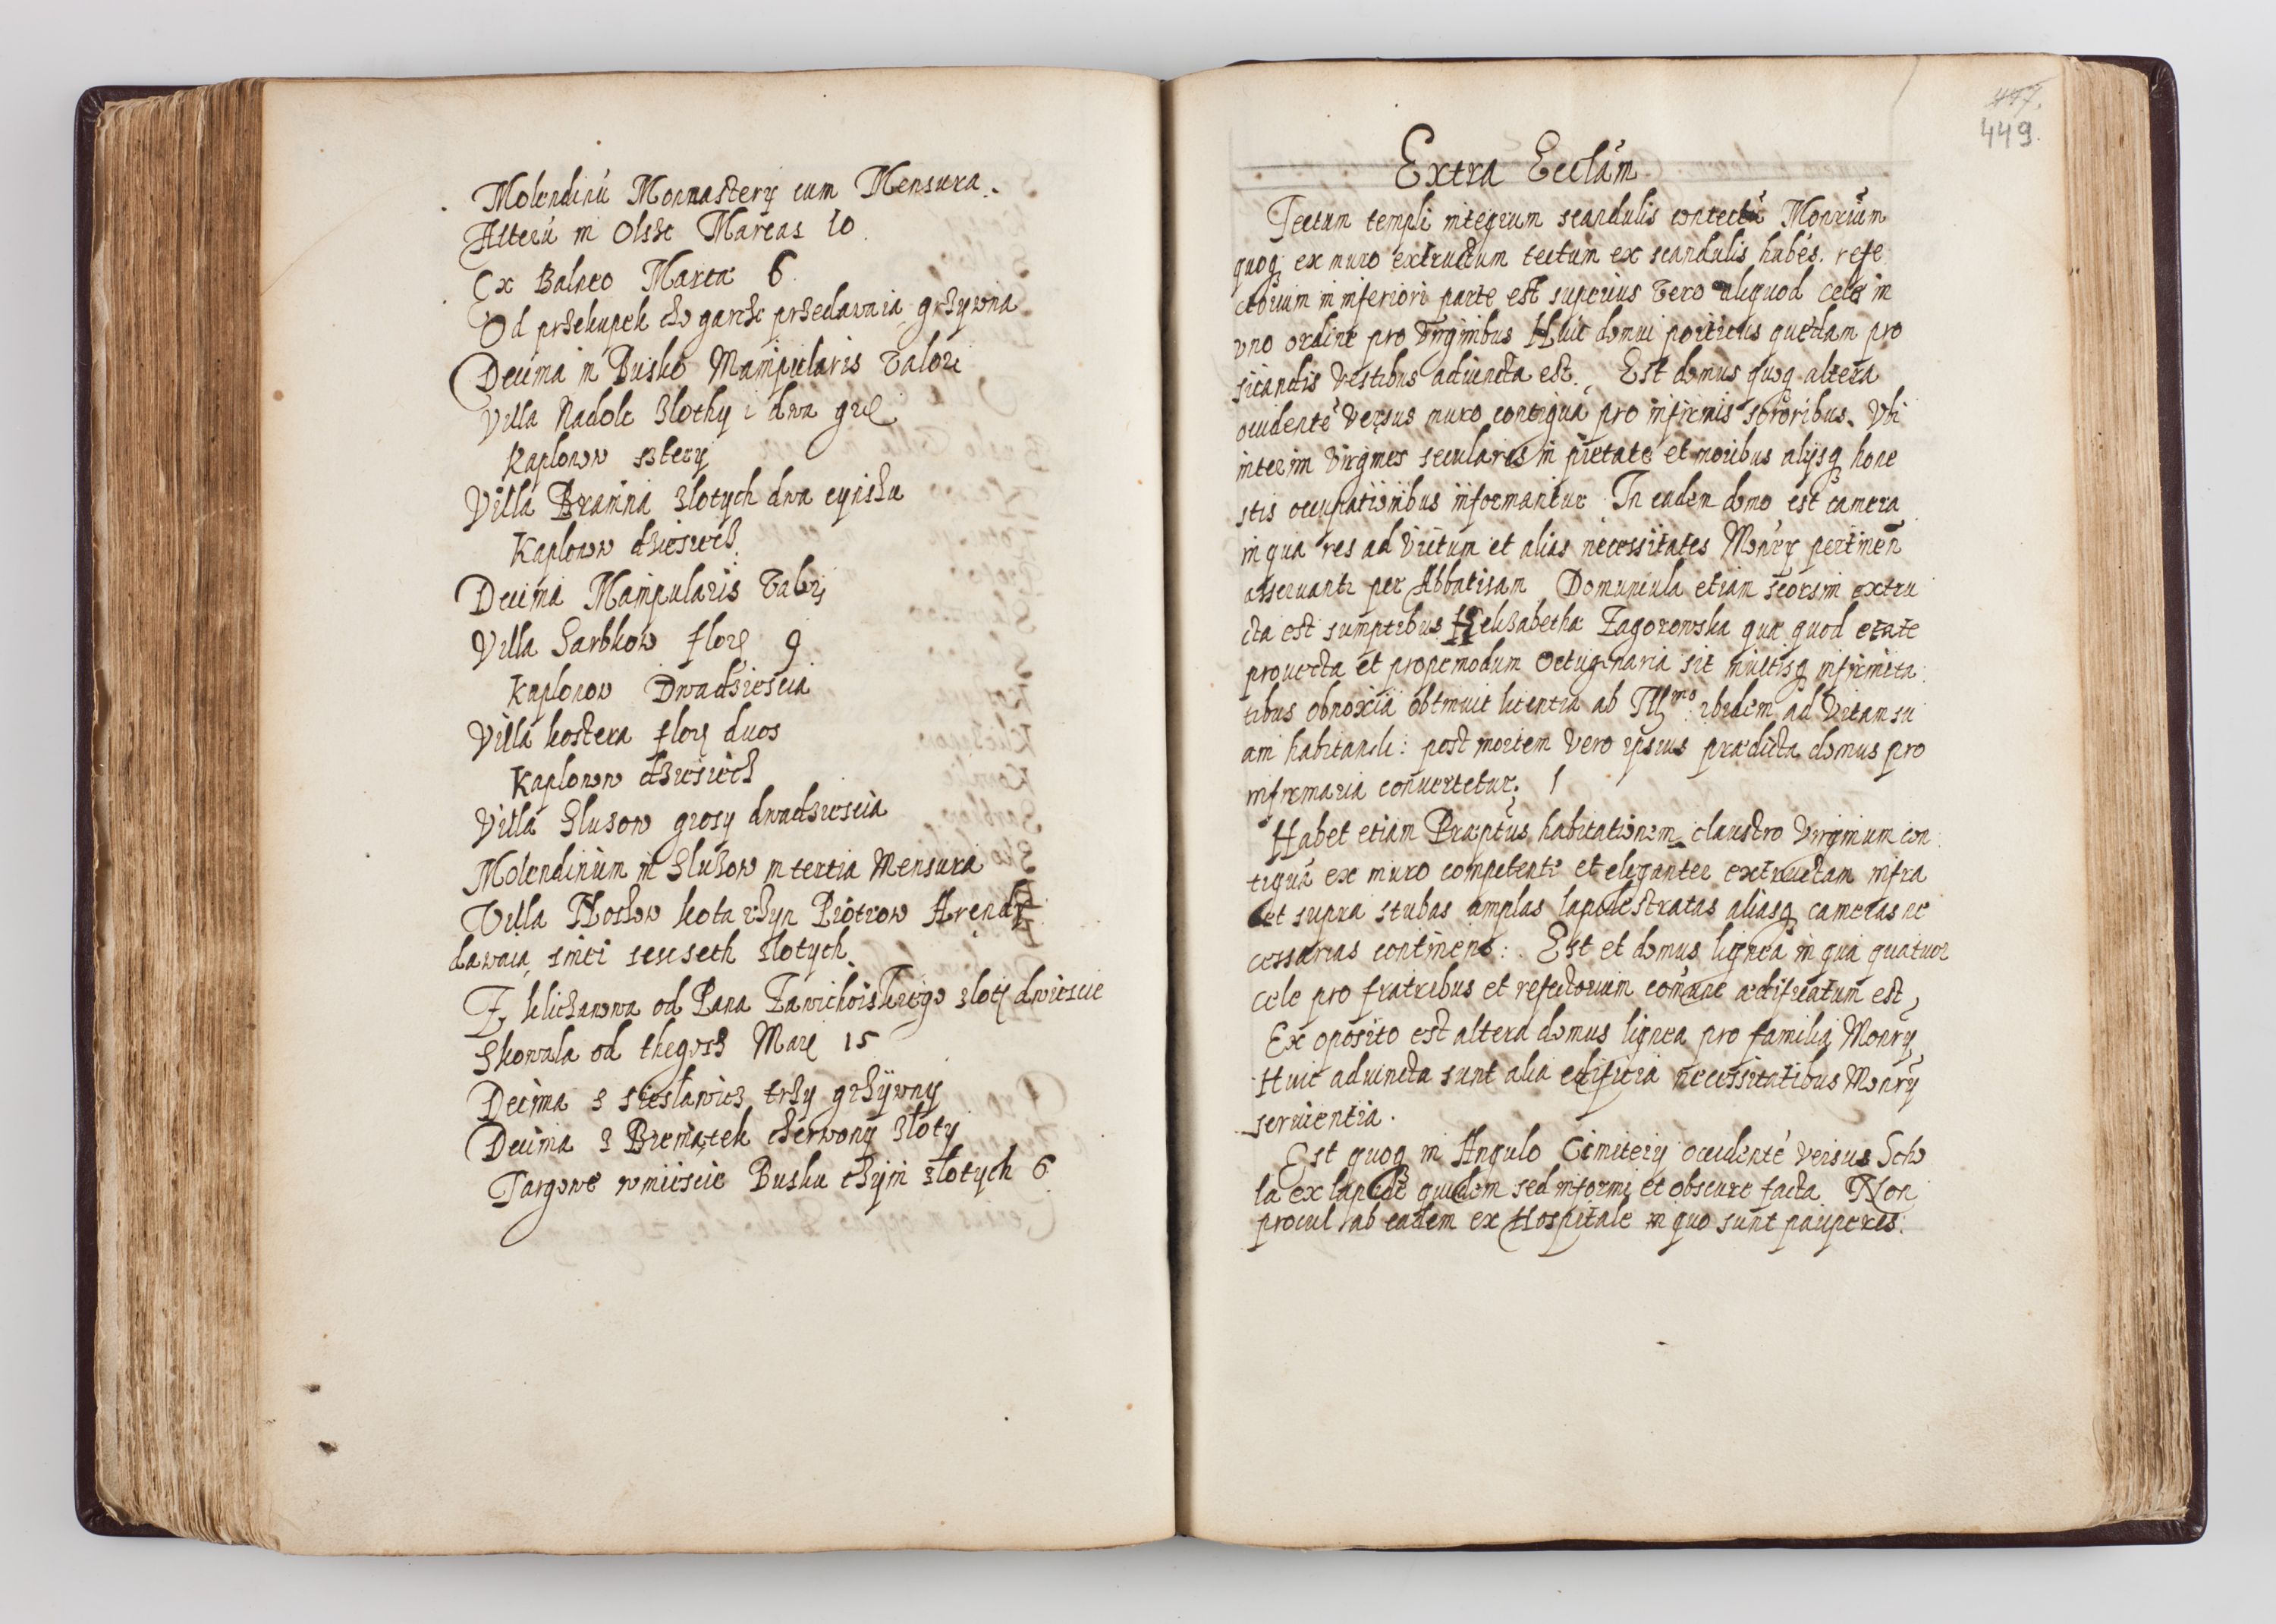 Molendinú Monnastery cum Mensura.
Alterú in Olsze Marcas 10
Ex Balneo Marcæ 6
Od przekupek cho garcze przedawaia grzywna
Decima in Busko Manipularis Valore
Villa Nadole zlothy i dwa
Kaplonow sztery
Villa Branina zlotych dwa cynszu
Kaplonow dziesiecz
Decima Manipularis
Villa Sarbkow flore 9
Kaplonow Dwadziescia
Villa kostera flore duos
Kaplonow dziesiecz
Villa Sluzow grosy dwadziescia
Molendinum in Sluzow in tertia Mensura
Villa kota Piotrow Arendy
dawaia sesceseth zlotych
Z klichawwa od Pana Zawichoiskiego zloty dwiescie
Skowala od thegosz Marc 15
Decima s sieslawicz trzy grzywny
Decima z cherwony zloty
Targowe wmiescie Busku zlotych 6
447.
449.
Extra Ecclám
Tectum templi integrum scandulis contectú Monrium
quoq ex muro extructum tectum ex scandulis habés. refe
ctorium in inferiori parte est superius vero aliquod cele in
uno ordine pro Virginibus Huic domui porticus quedam pro
sicandis vestibus adiuncta est. Est domus quoq altera
occidenté versus muro contigua pro infirmis sororibus. Vbi
interim Virgines seculares in pietate et moribus alijsq hone
stis occupationibus informantur In eadem domo est camera
in qua res ad victum et alias necessitates Monry pertinen
asseruantr per Abbatisam Domuncula etiam seorsim extru
cta est sumptibus Elisabetha Zagorowska quæ quod etate
prouecta et propemodum Octugenaria sit multisq infirmita
tibus obnoxia obtinuit licentia ab Illmo: ibidem ad vitam su
am habitandi: post mortem vero ipsius prædicta domus pro
infirmaria conuertetur.
Habet etiam Præptus habitationem claustro Virginum con
tiguá ex muro competenti et eleganter extructam infra
et supra stubas amplas lapide stratas aliasq cameras ne
cessarias continens: Est et domus lignea in qua quatuor
cele pro fratribus et refectorium comúne ædificatum est,
Ex oposito est altera domus lignea pro familia Monry
Huic adiuncta sunt alia edificia necessitatibus Monry
seruientia.
Est quoq in Angulo Cimitery occidenté versus Scho
la ex lapide quidem sed informi et obscure facta Non
procul ab eadem ex Hospitale in quo sunt pauperes.